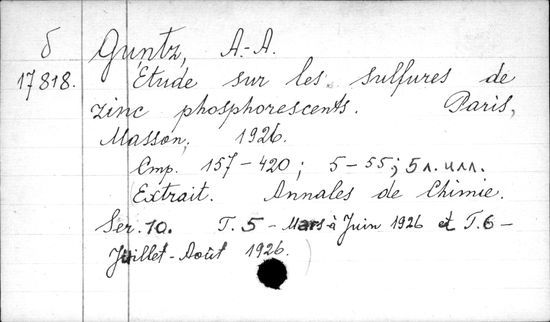 б Guntz, A.-A.
17818. Etude sur les sulfures de
zinc phosphorescents. Paris,
Masson, 1926.
Стр. 157-420; 5-55; 5 л. илл.
Extrait. Annales de Chimie.
Ser. 10. T. 5 - Mars à Juin 1926 et T. 6 -
Juillet-Août 1926.